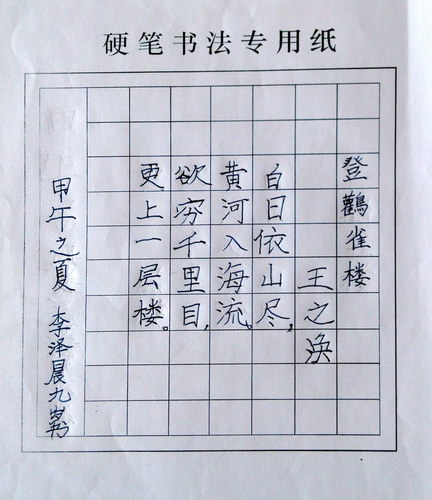 硬笔书法专用纸
登鸛雀楼
王之涣
白日依山尽，
黄河入海流。
欲穷千里目，
更上一层楼。
甲午之夏 李泽晨九岁书